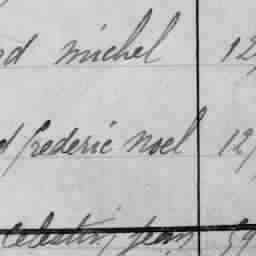 michel 12
frederic noel 12
Celestin jean 39